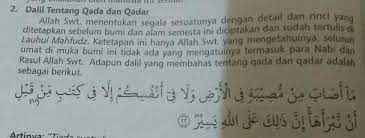 2. Dalil Tentang Qada dan Qadar
Allah Swt. menentukan segala sesuatunya dengan detail dan rinci yang
ditetapkan sebelum bumi dan alam semesta ini diciptakan dan sudah tertulis di
Lauhul Mahfudz. Ketetapan ini hanya Allah Swt. yang mengetahuinya, seluruh
umat di muka bumi ini tidak ada yang mengatuinya termasuk para Nabi dan
Rasul Allah Swt. Adapun dalil yang membahas tentang qada dan qadar adalah
sebagai berikut.
مَآ أَصَابَ مِنْ مُصِيبَةٍ فِي الْأَرْضِ وَلَا فِيٓ أَنْفُسِكُمْ إِلَّا فِي كِتَٰبٍ مِنْ قَبْلِ
أَنْ نَبْرَأَهَآ إِنَّ ذَٰلِكَ عَلَى اللَّهِ يَسِيرٌ ٢٢
Artinya: "Tiada